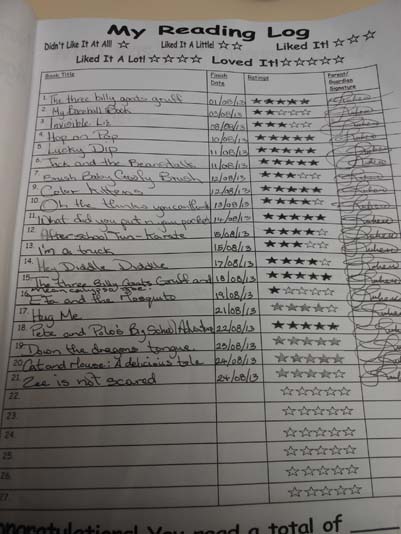 My Reading Log
Didn't Like It At All! ☆ Liked It A Little! ☆☆ Liked It! ☆☆☆
Liked It A Lot! ☆☆☆☆ Loved It! ☆☆☆☆☆
Book Title Finish Date Ratings Parent/Guardian Signature
1. The three billy goats gruff 01/08/13
2. My Baseball Book 05/08/13
3. Invisible Liz 08/08/13
4. Hop on Pop 10/08/13
5. Lucky Dip 11/08/13
6. Jack and the Beanstalk 11/08/13
7. Brush Baby Brush 12/08/13
9. Color kittens 12/08/13
10. Oh the thinks you can think 13/08/13
11. What did you put in your pocket 14/08/13
12. Afterschool Fun-Karate 15/08/13
13. I'm a truck 15/08/13
14. Hey Diddle Diddle 17/08/13
15. The three Billy Goats Gruff and mean calypso Joe. 18/08/13
16. and the Mosquito 19/08/13
17. Hug Me 21/08/13
18. Pete and Polo's Big School Adventure 22/08/13
19. Down the dragons tongue 23/08/13
20. Cat and Mouse: A delicious tale 24/08/13
21. Zee is not scared 24/08/13
22.
23.
24.
25.
26.
27.
Congratulations! You read a total of